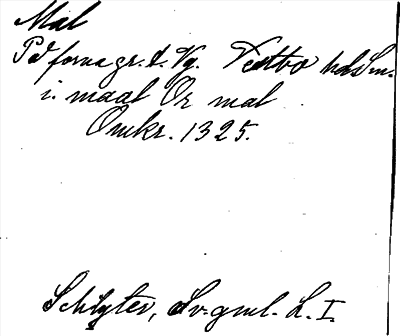 Mal
På forna gr. t. Vg. Vestbo hds Sm.
i: maal Or mal
Omkr. 1325.
Schlyter, Sv. gml. L. I.